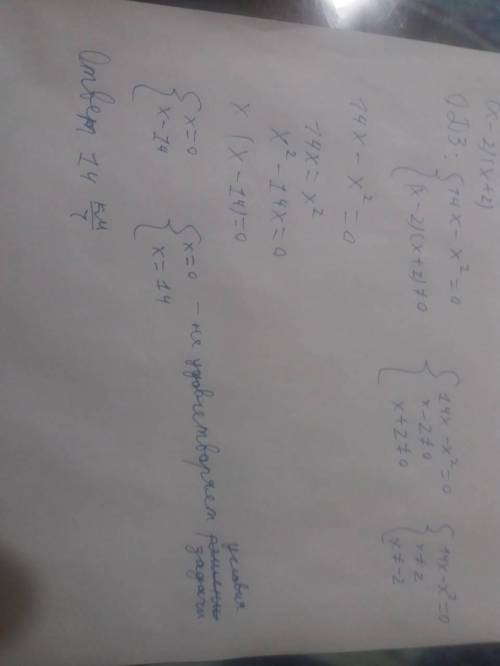 (x-2)(x+2)
ОДЗ: { 14x - x² = 0 { 14x - x² = 0 { 14x - x² = 0
(x-2)(x+2) ≠ 0 x-2 ≠ 0 x ≠ 2
x+2 ≠ 0 x ≠ -2
14x - x² = 0
14x = x²
x² - 14x = 0
x (x-14) = 0
{ x = 0 { x = 0 - не удовлетворяет условия
x - 14 x = 14 задачи
Ответ 14 км/ч